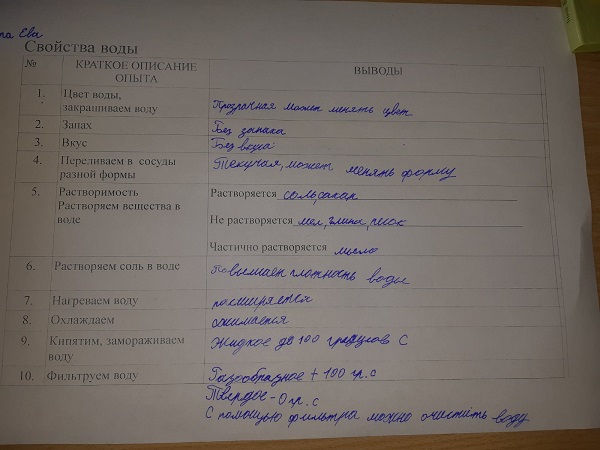 ра Ева
Свойства воды
№ КРАТКОЕ ОПИСАНИЕ ОПЫТА ВЫВОДЫ
1. Цвет воды, закрашиваем воду Прозрачная может менять цвет
2. Запах Без запаха
3. Вкус Без вкуса
4. Переливаем в сосуды разной формы Текучая, может менять форму
5. Растворимость Растворяем вещества в воде Растворяется соль, сахар
Не растворяется мел, глина, песок
Частично растворяется мыло
6. Растворяем соль в воде Повышает плотность воды
7. Нагреваем воду расширяется
8. Охлаждаем сжимается
9. Кипятим, замораживаем воду Жидкое до 100 градусов С
10. Фильтруем воду Газообразное + 100 гр. с
Твердое - 0 гр. с
С помощью фильтра можно очистить воду